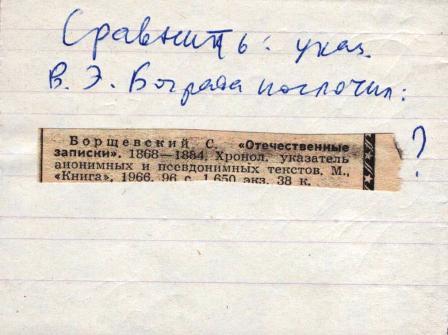 Сравнить: указ.
В. Э. Бограда
?
Борщевский С. «Отечественные
записки». 1868—1884. Хронол. указатель
анонимных и псевдонимных текстов. М.,
«Книга», 1966. 96 с. 1 650 экз. 38 к.